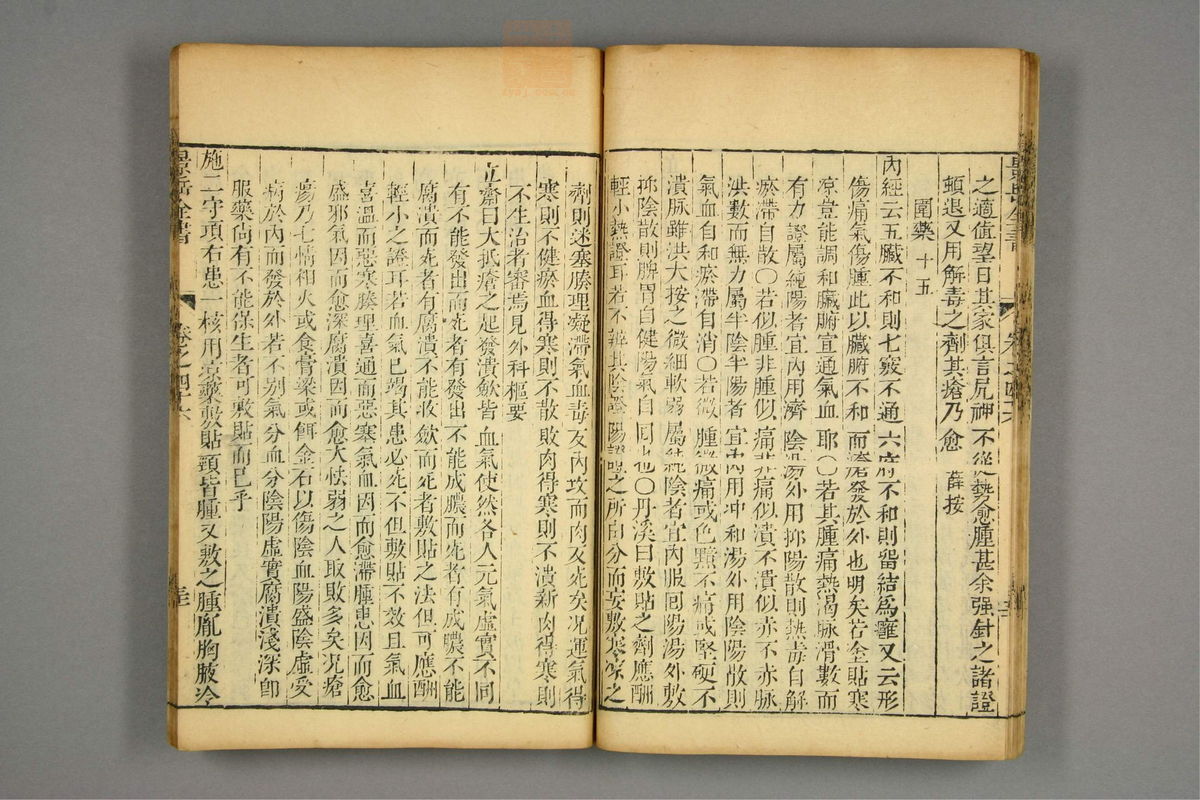 之適値望日其家俱言尻神不從勢愈腫甚余强針之諸證
頓退又用解毒之劑其瘡乃愈 薛按
圍藥 十五
內經云五臟不和則七竅不通六府不和則留結爲癰又云形
傷痛氣傷腫此以臟腑不和而瘡發於外也明矣若全貼寒
凉豈能調和臟腑宣通氣血耶○若其腫痛熱渴脉滑數而
有力證屬純陽者宜內用濟陰湯外用抑陽散則熱毒自解
瘀滯自散○若似腫非腫似痛非痛似潰不潰似赤不赤脉
洪數而無力屬半陰半陽者宜內用冲和湯外用陰陽散則
氣血自和瘀滯自消○若微腫微痛或色黯不痛或堅硬不
潰脉雖洪大按之微細軟弱屬純陰者宜內服回陽湯外敷
抑陰散則脾胃自健陽氣自回也○丹溪曰敷貼之劑應酬
輕小熱證耳若不辨其陰證陽證之所由分而妄敷寒凉之
劑則迷塞腠理凝滯氣血毒反內攻而肉反死矣况運氣得
寒則不健瘀血得寒則不散敗肉得寒則不潰新肉得寒則
不生治者審焉見外科樞要
立齋曰大抵瘡之起發潰歛皆血氣使然各人元氣虛實不同
有不能發出而死者有發出不能成膿而死者有成膿不能
腐潰而死者有腐潰不能收歛而死者敷貼之法但可應酬
輕小之證耳若血氣已竭其患必死不但敷貼不效且氣血
喜溫而惡寒腠理喜通而惡寒氣血因而愈滯腫患因而愈
盛邪氣因而愈深腐潰因而愈大怯弱之人取敗多矣况瘡
瘍乃七情相火或食膏粱或餌金石以傷陰血陽盛陰虛受
病於內而發於外若不別氣分血分陰陽虛實腐潰淺深卽
服藥尙有不能保生者可敷貼而已乎
施二守項右患一核用凉藥敷貼頸皆腫又敷之腫胤胸腋冷
景岳全書
卷之四十六
景岳全書
卷之四十六